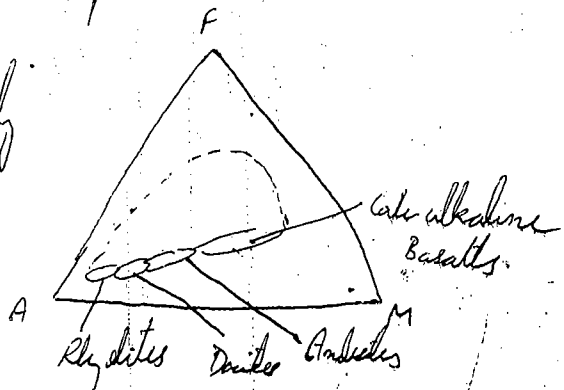 F
Calc alkaline
Basalts.
A
M
Rhyolites
Dacites
Andesites